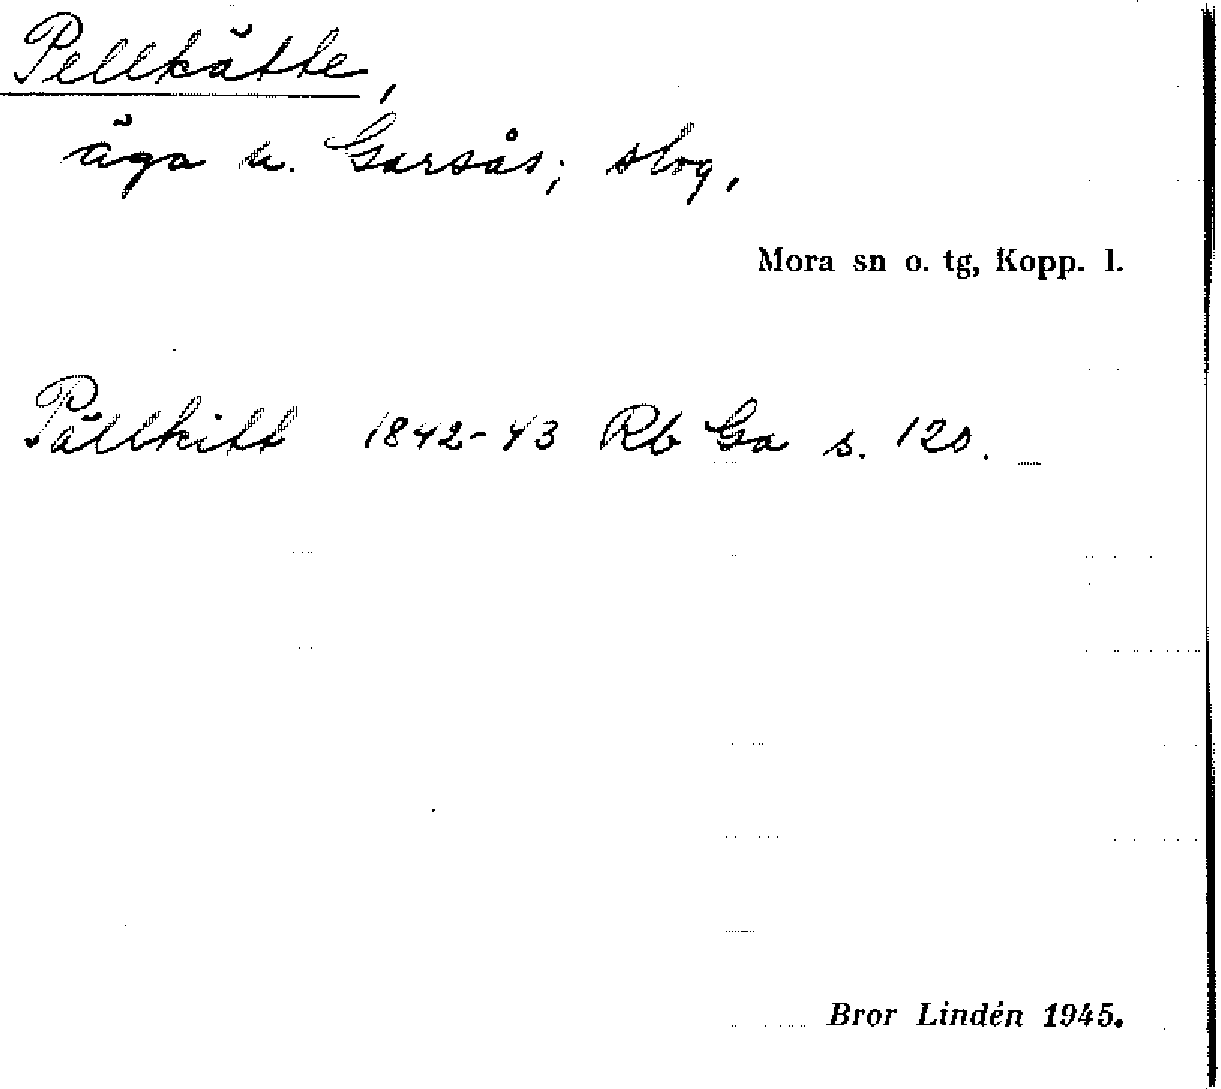 Pellkätte,
äga u. Garsås; skog.
Mora sn o. tg, Kopp. l.
Pällkitt 1842-43 Rb Ga s. 120. _
Bror Lindén 1945.